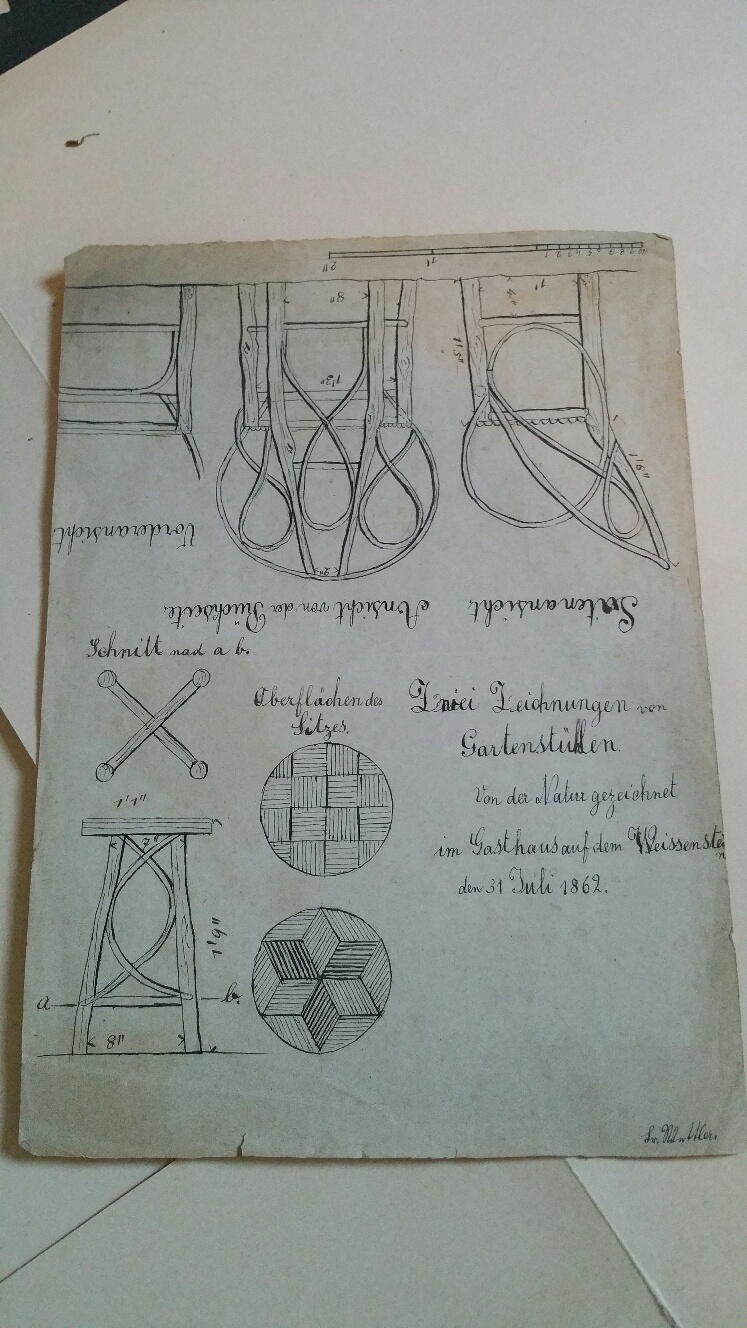 2" 1' 1 2 3 4 5 6 7 8 9 10
8" 4" 1'
1'3" 1'5"
1'6"
2"
Vorderansicht.
Ansicht von der Rückseite.
Seitenansicht.
Schnitt nad a b.
Oberflächen des
Sitzes.
Zwei Zeichnungen von
Gartenstühlen.
Von der Natur gezeichnet
im Gasthaus auf dem Weissenstein
den 31 Juli 1862.
1'1"
7"
1'6"
a b.
8"